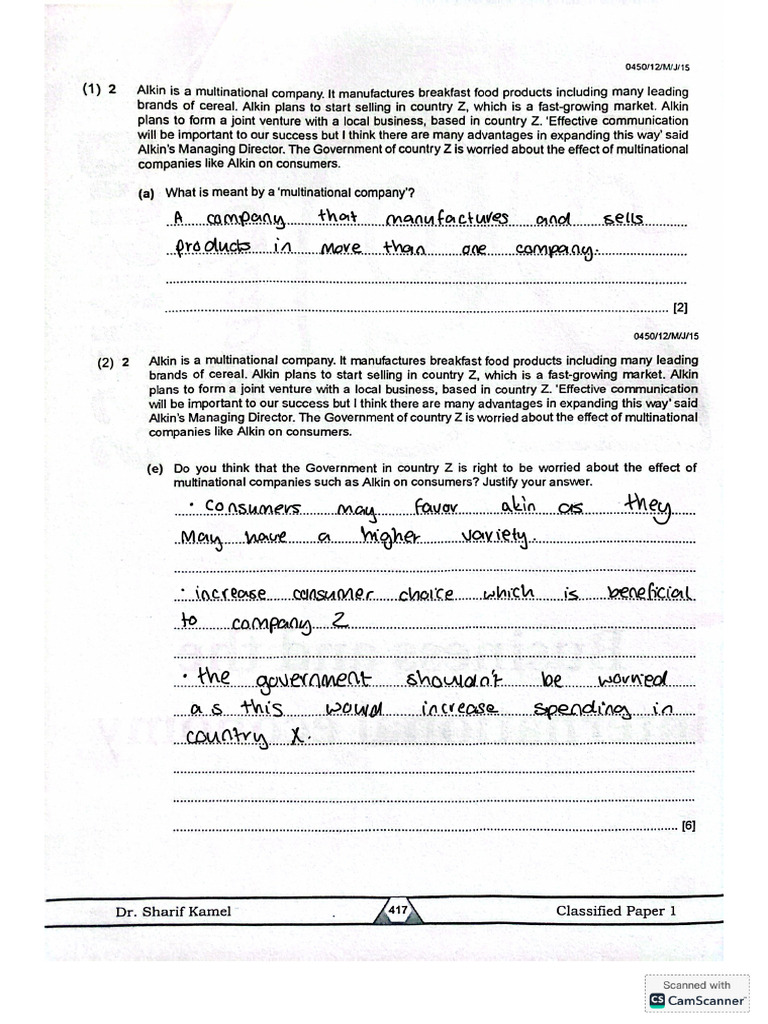 0450/12/M/J/15
(1) 2 Alkin is a multinational company. It manufactures breakfast food products including many leading
brands of cereal. Alkin plans to start selling in country Z, which is a fast-growing market. Alkin
plans to form a joint venture with a local business, based in country Z. 'Effective communication
will be important to our success but I think there are many advantages in expanding this way' said
Alkin's Managing Director. The Government of country Z is worried about the effect of multinational
companies like Alkin on consumers.
(a) What is meant by a 'multinational company'?
A company that manufactures and sells
products in more than one company.
[2]
0450/12/M/J/15
(2) 2 Alkin is a multinational company. It manufactures breakfast food products including many leading
brands of cereal. Alkin plans to start selling in country Z, which is a fast-growing market. Alkin
plans to form a joint venture with a local business, based in country Z. 'Effective communication
will be important to our success but I think there are many advantages in expanding this way' said
Alkin's Managing Director. The Government of country Z is worried about the effect of multinational
companies like Alkin on consumers.
(e) Do you think that the Government in country Z is right to be worried about the effect of
multinational companies such as Alkin on consumers? Justify your answer.
• consumers may favor alkin as they
May have a higher variety.
• increase consumer choice which is beneficial
to company Z
• the government shouldn't be worried
as this would increase spending in
country X.
[6]
Dr. Sharif Kamel 417 Classified Paper 1
Scanned with
CS CamScanner